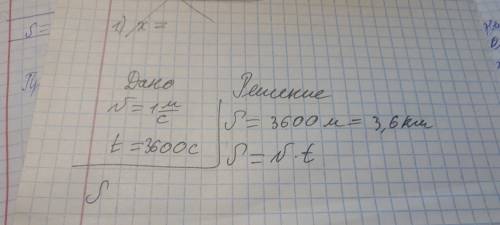 S =
1) x =
Дано
v = 1 м/с
t = 3600 с
S
Решение
S = 3600 м = 3,6 км
S = v · t